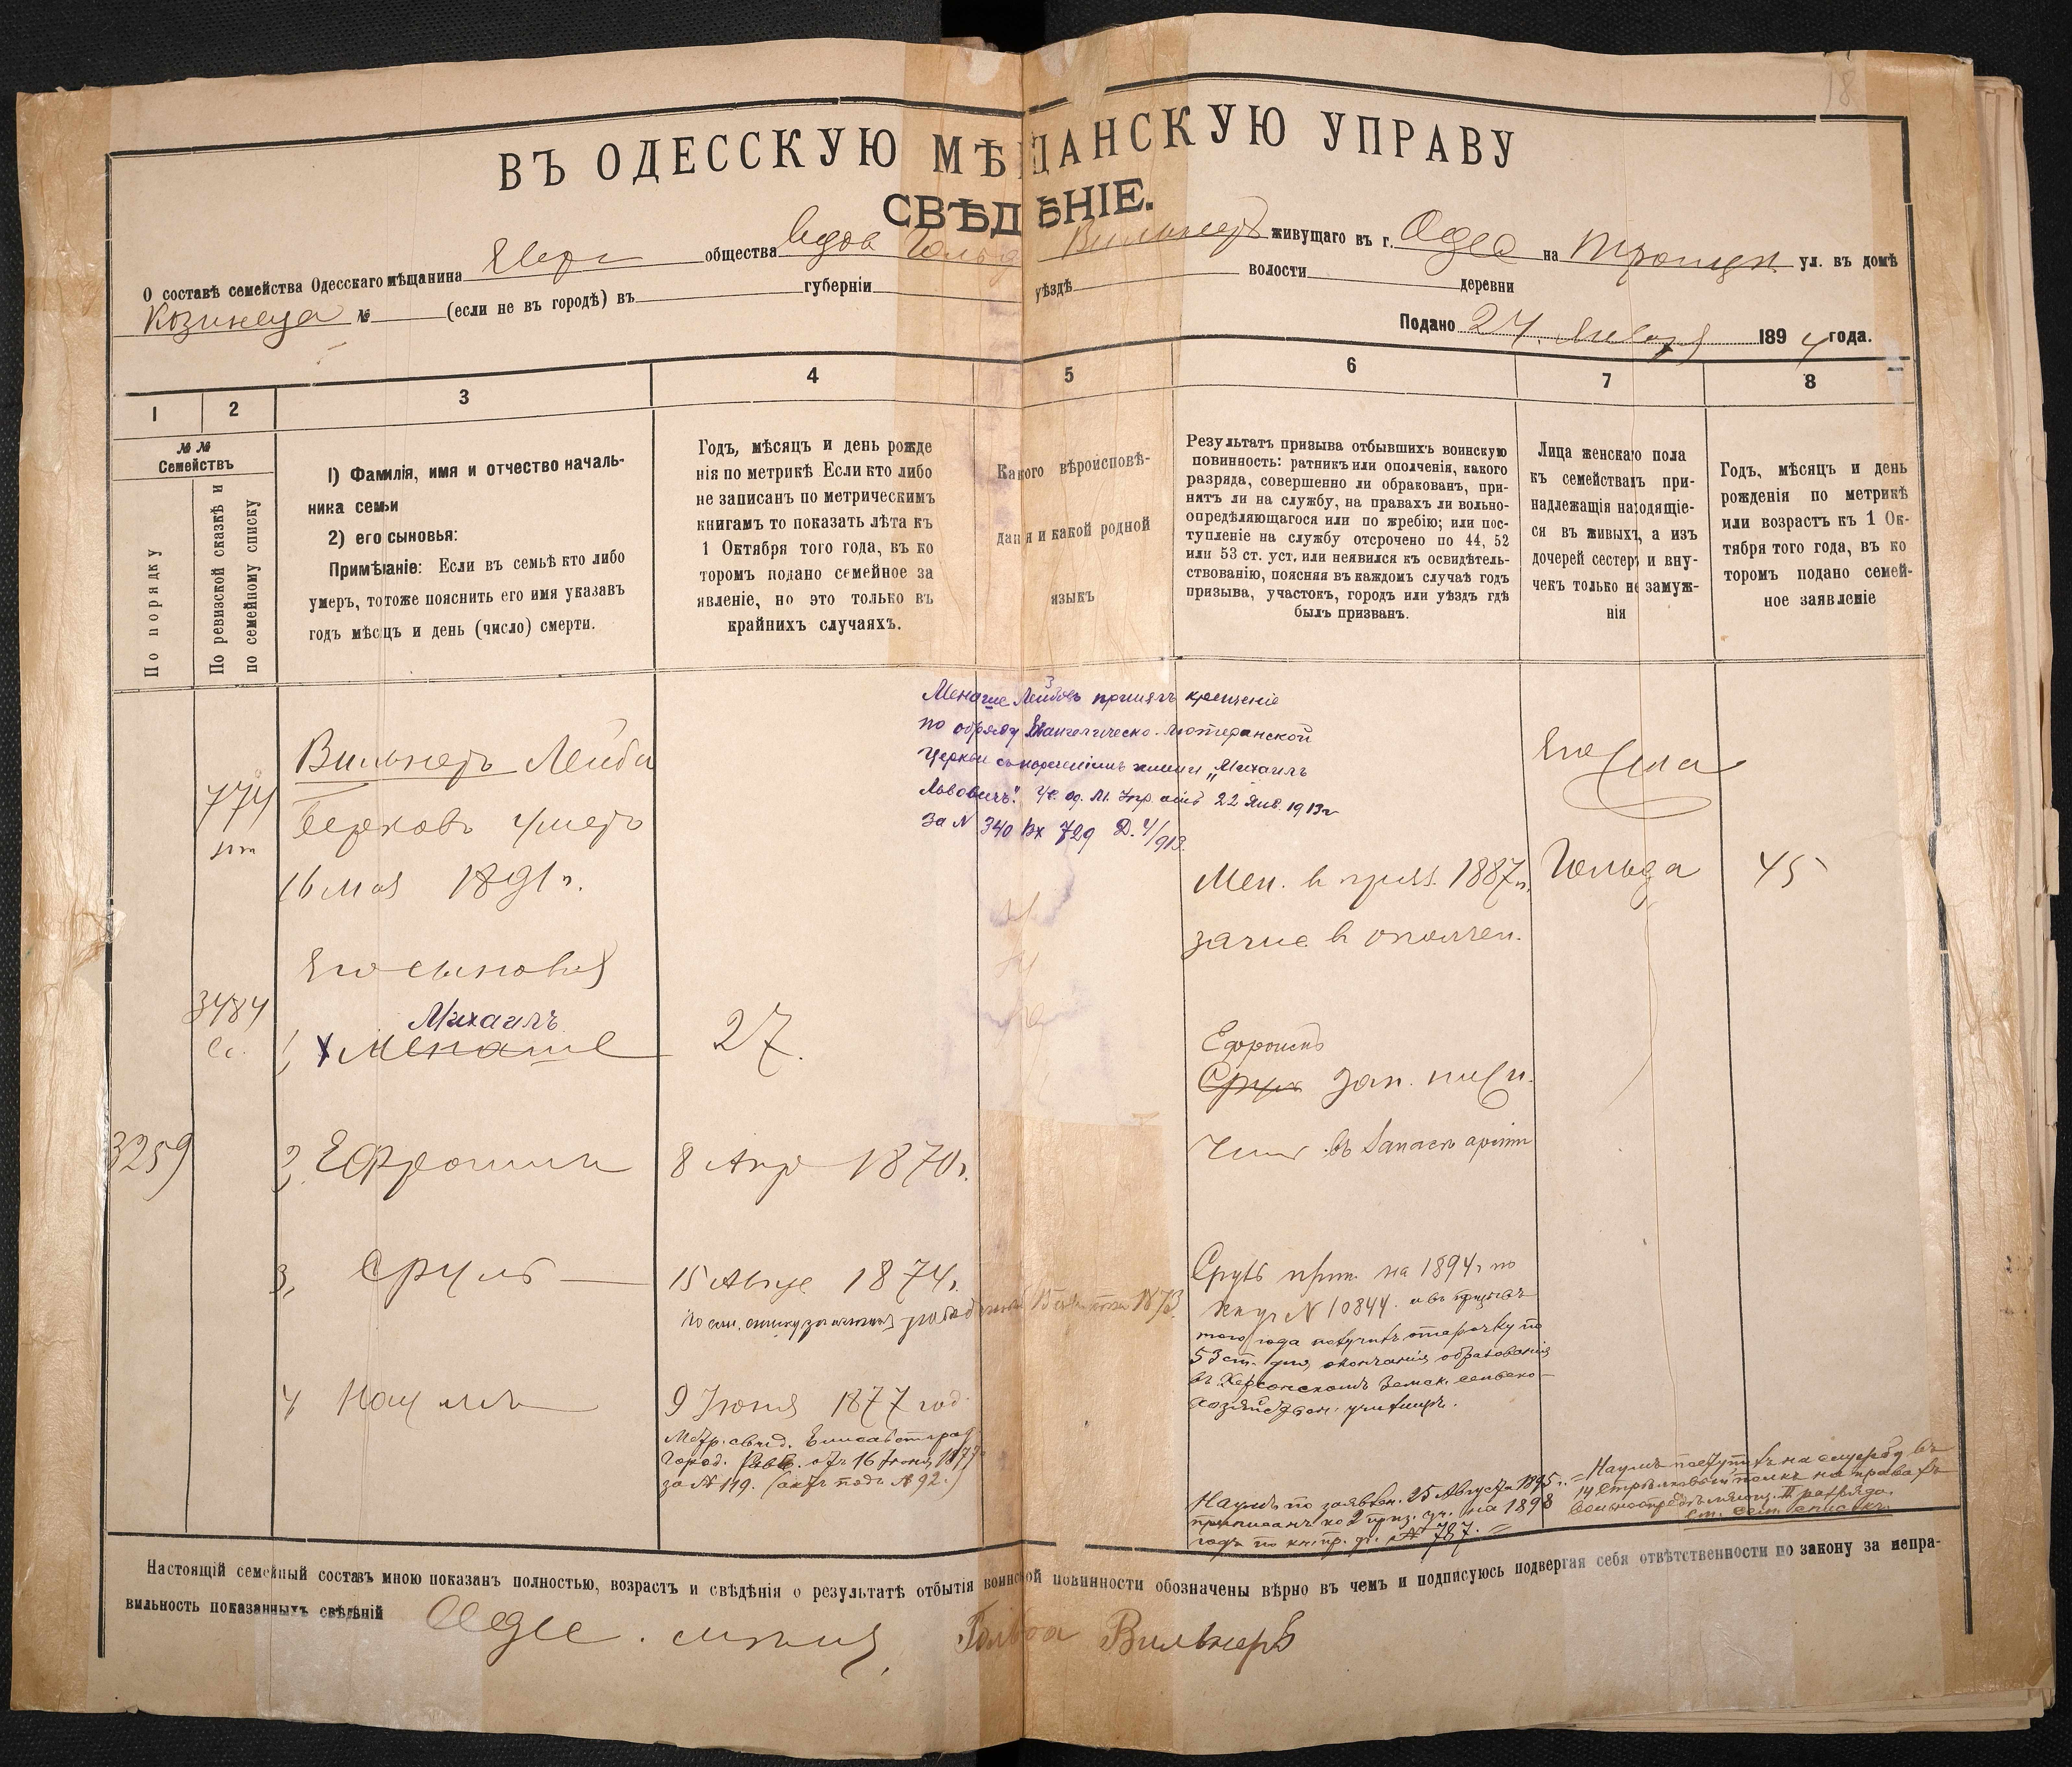 18
ВЪ ОДЕССКУЮ МѢЩАНСКУЮ УПРАВУ
СВѢДѢНІЕ.
О составѣ семейства Одесскаго мѣщанина Евре общества вдов Гольд Вильнеръ живущаго въ г. Одес на Троицк. ул. въ домѣ
Козинеца № (если не въ городѣ) въ губерніи уѣздѣ волости деревни
Подано 24 Января 1894 года.
1 2 3 4 5 6 7 8
№ №
Семействъ
По порядку
По ревизской сказкѣ и
по семейному списку
1) Фамилія, имя и отчество началь-
ника семьи
2) его сыновья:
Примѣчаніе: Если въ семьѣ кто либо
умеръ, то тоже пояснить его имя указавъ
годъ мѣсяцъ и день (число) смерти.
Годъ, мѣсяцъ и день рожде
нія по метрикѣ Если кто либо
не записанъ по метрическимъ
книгамъ то показать лѣта къ
1 Октября того года, въ ко
торомъ подано семейное за
явленіе, но это только въ
крайнихъ случаяхъ.
Какого вѣроисповѣ-
данія и какой родной
языкъ
Результатъ призыва отбывшихъ воинскую
повинность: ратникъ или ополченія, какого
разряда, совершенно ли обракованъ, при-
нятъ ли на службу, на правахъ ли вольно-
опредѣляющагося или по жребію; или пос-
тупленіе на службу отсрочено по 44, 52
или 53 ст. уст. или неявился къ освидѣтель-
ствованію, поясняя въ каждомъ случаѣ годъ
призыва, участокъ, городъ или уѣздъ гдѣ
былъ призванъ.
Лица женскаго пола
къ семействамъ при-
надлежащія находящіе-
ся въ живыхъ, а изъ
дочерей сестеръ и вну-
чекъ только не замуж-
нія
Годъ, мѣсяцъ и день
рожденія по метрикѣ
или возрастъ къ 1 Ок-
тября того года, въ ко
торомъ подано семей-
ное заявленіе
Менаше Лейбовъ принялъ крещеніе
по обряду Евангелическо-Лютеранской
Церкви съ нареченіемъ имени „Михаилъ
Львовичъ“. Ук. од. М. Упр отъ 22 Янв. 1913 г
За N 340 Вх 729 Д. 4/913.
774
Вильнеръ Лейба
Берковъ умеръ
16 мая 1891 г.
Его
Гольда 45
Мен. в призв. 1887 г.
зачис. в ополчен.
Его сыновья
3484
Михаилъ
1, Менаше 27.
Ефроимъ
Сруль зап.
3259 2, Ефроим 8 Апр 1870 г.
въ запасъ арміи
3, Сруль 15 Авгус 1874 г.
1873
Сруль прип. на 1894 г по
кн уч N 10844. а въ призывъ
того года получилъ отсрочку по
53 ст. для окончанія образованія
въ Херсонскомъ Земск. сельско-
хозяйствен. училищѣ.
4 Наумъ 9 Іюня 1877 год.
Метр. свид. Елисаветград.
Город. Равв. отъ 16 Іюня 1877
за № 119. (актъ подъ № 92.)
Наумъ по заявлен. 25 Августа 1895 г.
приписанъ ко 2 приз. уч. на 1898
годъ по кн. пр. уч. № 787.
Наумъ поступилъ на службу въ
14 Стрѣлковый полкъ на правахъ
вольноопредѣляющ. II разряда.
Настоящій семейный составъ мною показанъ полностью, возрастъ и свѣдѣнія о результатѣ отбытія воинской повинности обозначены вѣрно въ чемъ и подписуюсь подвергая себя отвѣтственности по закону за непра-
вильность показанныхъ свѣдѣній Одес. мѣщан. Гольда Вильнеръ